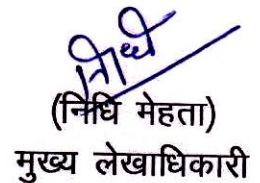 निधि
(निधि मेहता)
मुख्य लेखाधिकारी